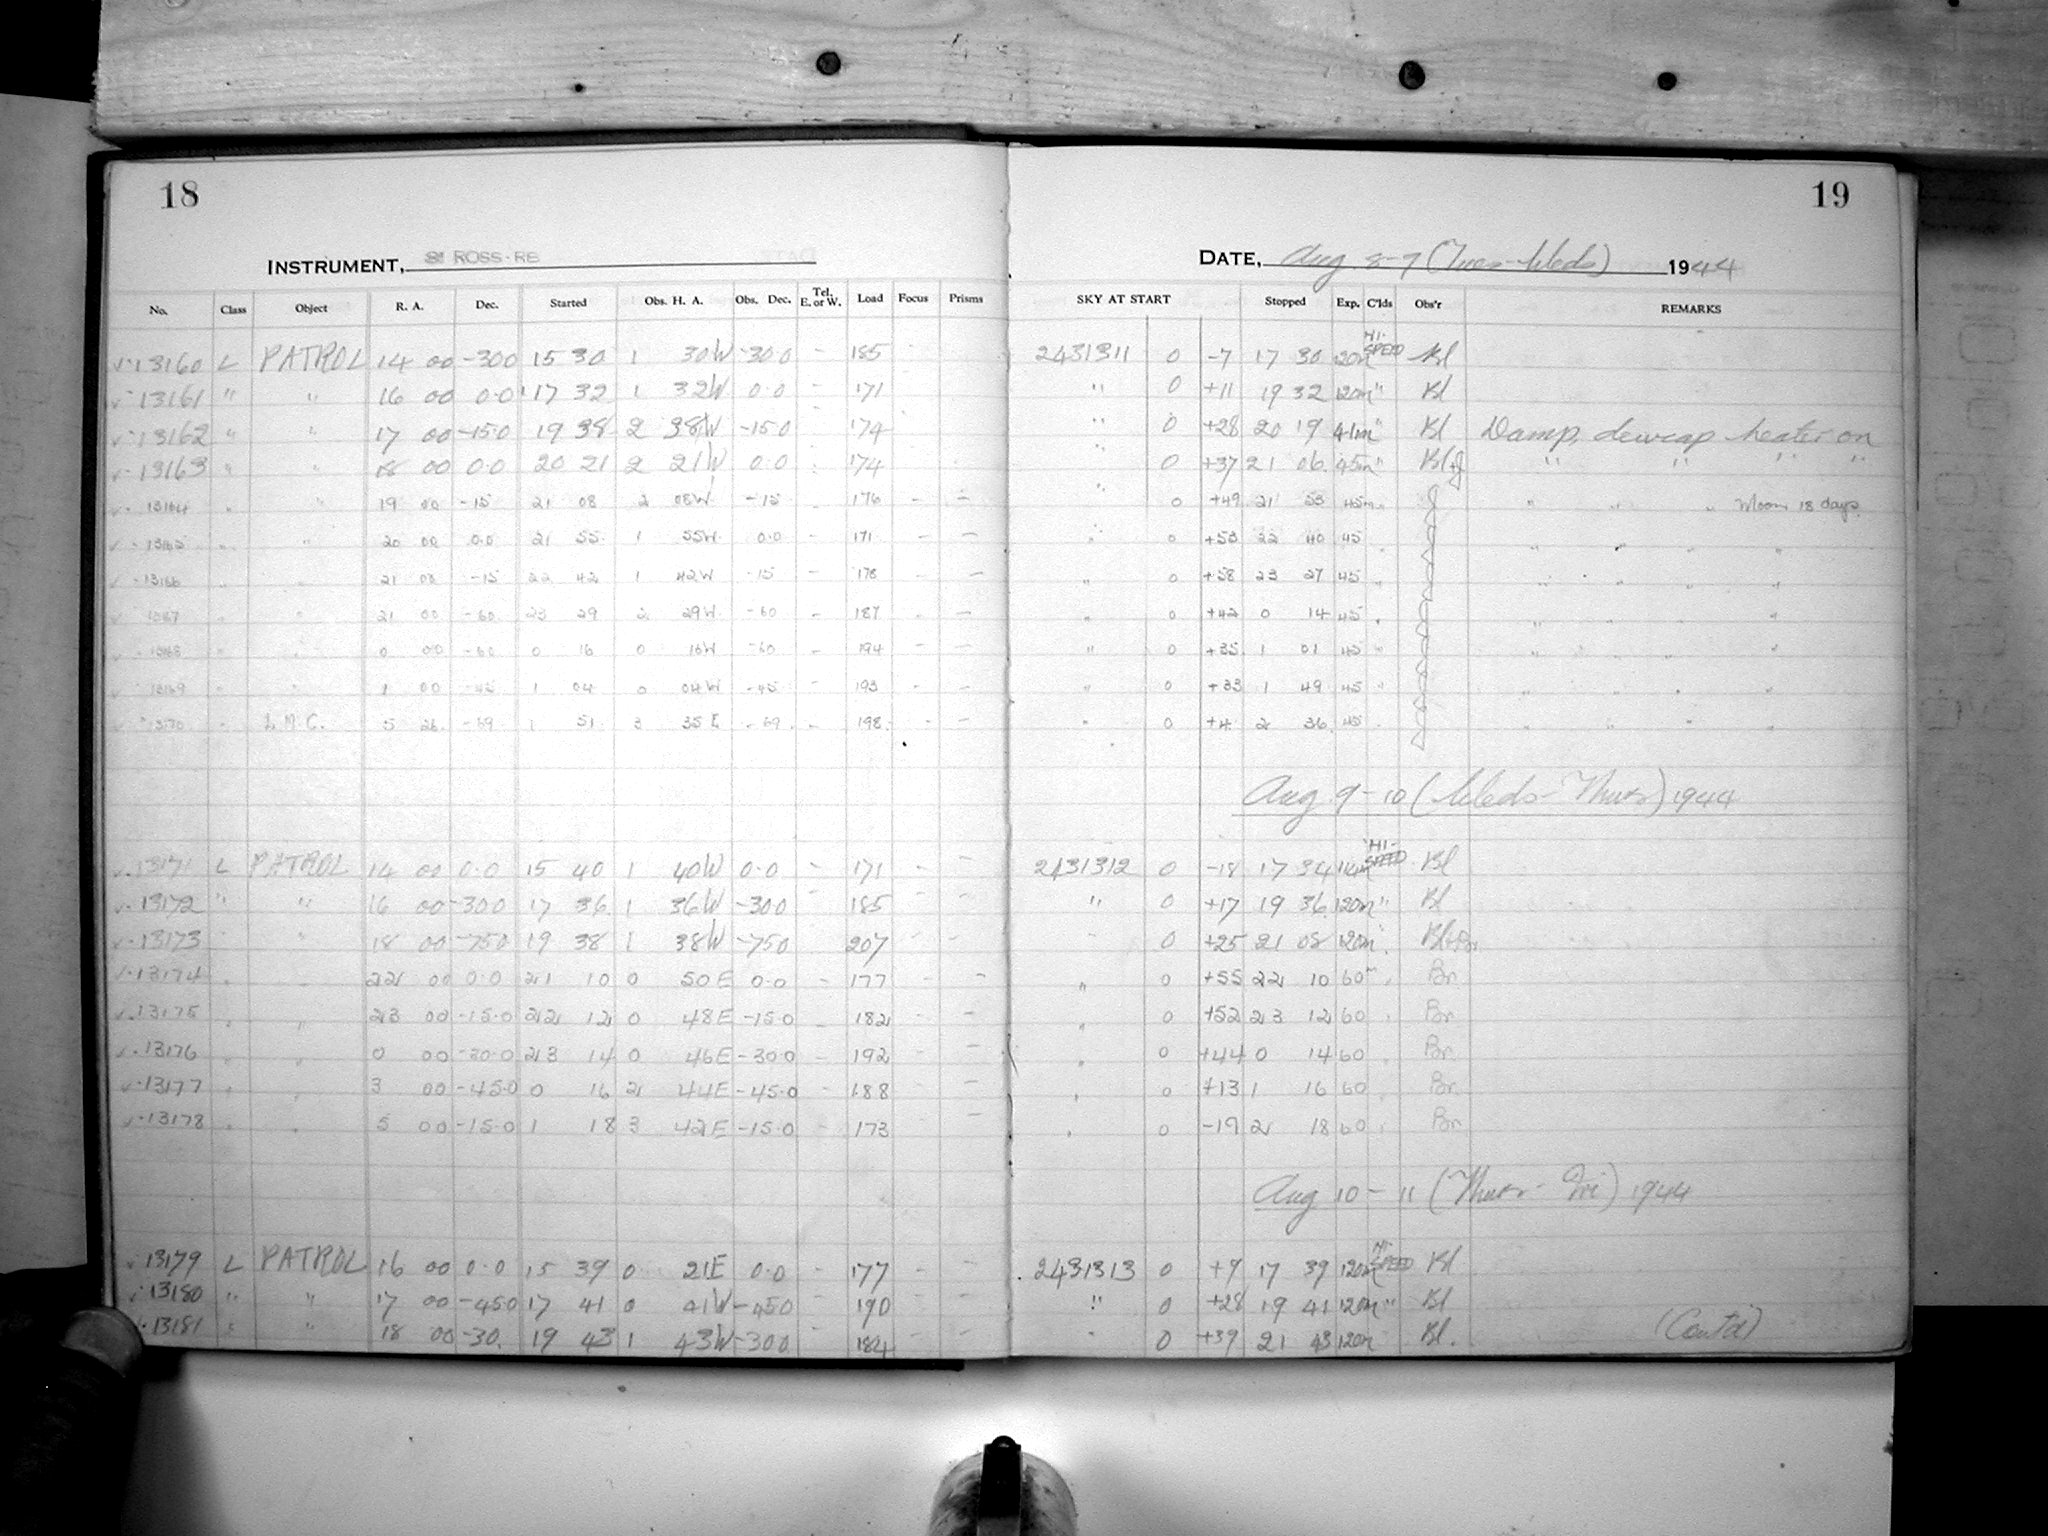 18
19
INSTRUMENT, ROSS-RB
DATE, Aug 8-9 (Tues-Weds) 1944
No. Class Object R. A. Dec. Started Obs. H. A. Obs. Dec. Tel. E. or W. Load Focus Prisms SKY AT START Stopped Exp. C'lds Obs'r REMARKS
13160 L PATROL 14 00 -30.0 15 30 1 30W -30.0 - 185 2431311 0 -7 17 30 120m HI-SPEED Bl
13161 " " 16 00 0.0 17 32 1 32W 0.0 - 171 " 0 +11 19 32 120m " Bl
13162 " " 17 00 -15.0 19 38 2 38W -15.0 - 174 " 0 +28 20 19 41m " Bl Damp, dewcap heater on
13163 " " 18 00 0.0 20 21 2 21W 0.0 174 " 0 +37 21 06 45m " " " "
13164 " " 19 00 -15 21 08 2 08W -15 176 - - " 0 +49 21 53 45m " " " Moon 18 days
13165 " " 20 00 0.0 21 55 1 55W 0.0 171 - - " 0 +53 22 40 45 " " " "
13166 " " 21 00 -15 22 42 1 42W -15 - 178 - " 0 +58 23 27 45 " " " "
13167 " " 21 00 -60 23 29 2 29W -60 - 187 - - " 0 +42 0 14 45 " " " "
13168 " " 0 00 -60 0 16 0 16W -60 - 194 - - " 0 +35 1 01 45 " " " " "
13169 " " 1 00 -45 1 04 0 04W -45 - 193 - - " 0 +33 1 49 45 " " " " "
13170 " L.M.C. 5 26 -69 1 51 3 35E -69 - 198 - - " 0 +4 2 36 45 " " " " "
Aug 9-10 (Weds-Thurs) 1944
13171 L PATROL 14 00 0.0 15 40 1 40W 0.0 - 171 - - 2431312 0 -18 17 34 114m HI-SPEED Bl
13172 " " 16 00 -30.0 17 36 1 36W -30.0 - 185 - - " 0 +17 19 36 120m " Bl
13173 " " 18 00 -75.0 19 38 1 38W -75.0 207 - - " 0 +25 21 08 120m " Bl+Br
13174 " " 22 00 0.0 21 10 0 50E 0.0 - 177 - - " 0 +55 22 10 60m " Br
13175 " " 23 00 -15.0 22 12 0 48E -15.0 - 182 - - " 0 +52 23 12 60 " Br
13176 " " 0 00 -30.0 23 14 0 46E -30.0 - 192 - - " 0 +44 0 14 60 " Br
13177 " " 3 00 -45.0 0 16 2 44E -45.0 - 188 - - " 0 +13 1 16 60 " Br
13178 " " 5 00 -15.0 1 18 3 42E -15.0 - 173 - " 0 -19 2 18 60 " Br
Aug 10-11 (Thurs-Fri) 1944
13179 L PATROL 16 00 0.0 15 39 0 21E 0.0 - 177 - - 2431313 0 +9 17 39 120m HI-SPEED Bl
13180 " " 17 00 -45.0 17 41 0 41W -45.0 - 190 - - " 0 +28 19 41 120m " Bl
13181 " " 18 00 -30. 19 43 1 43W -30.0 - 184 - - " 0 +39 21 43 120m Bl. (Cont'd)